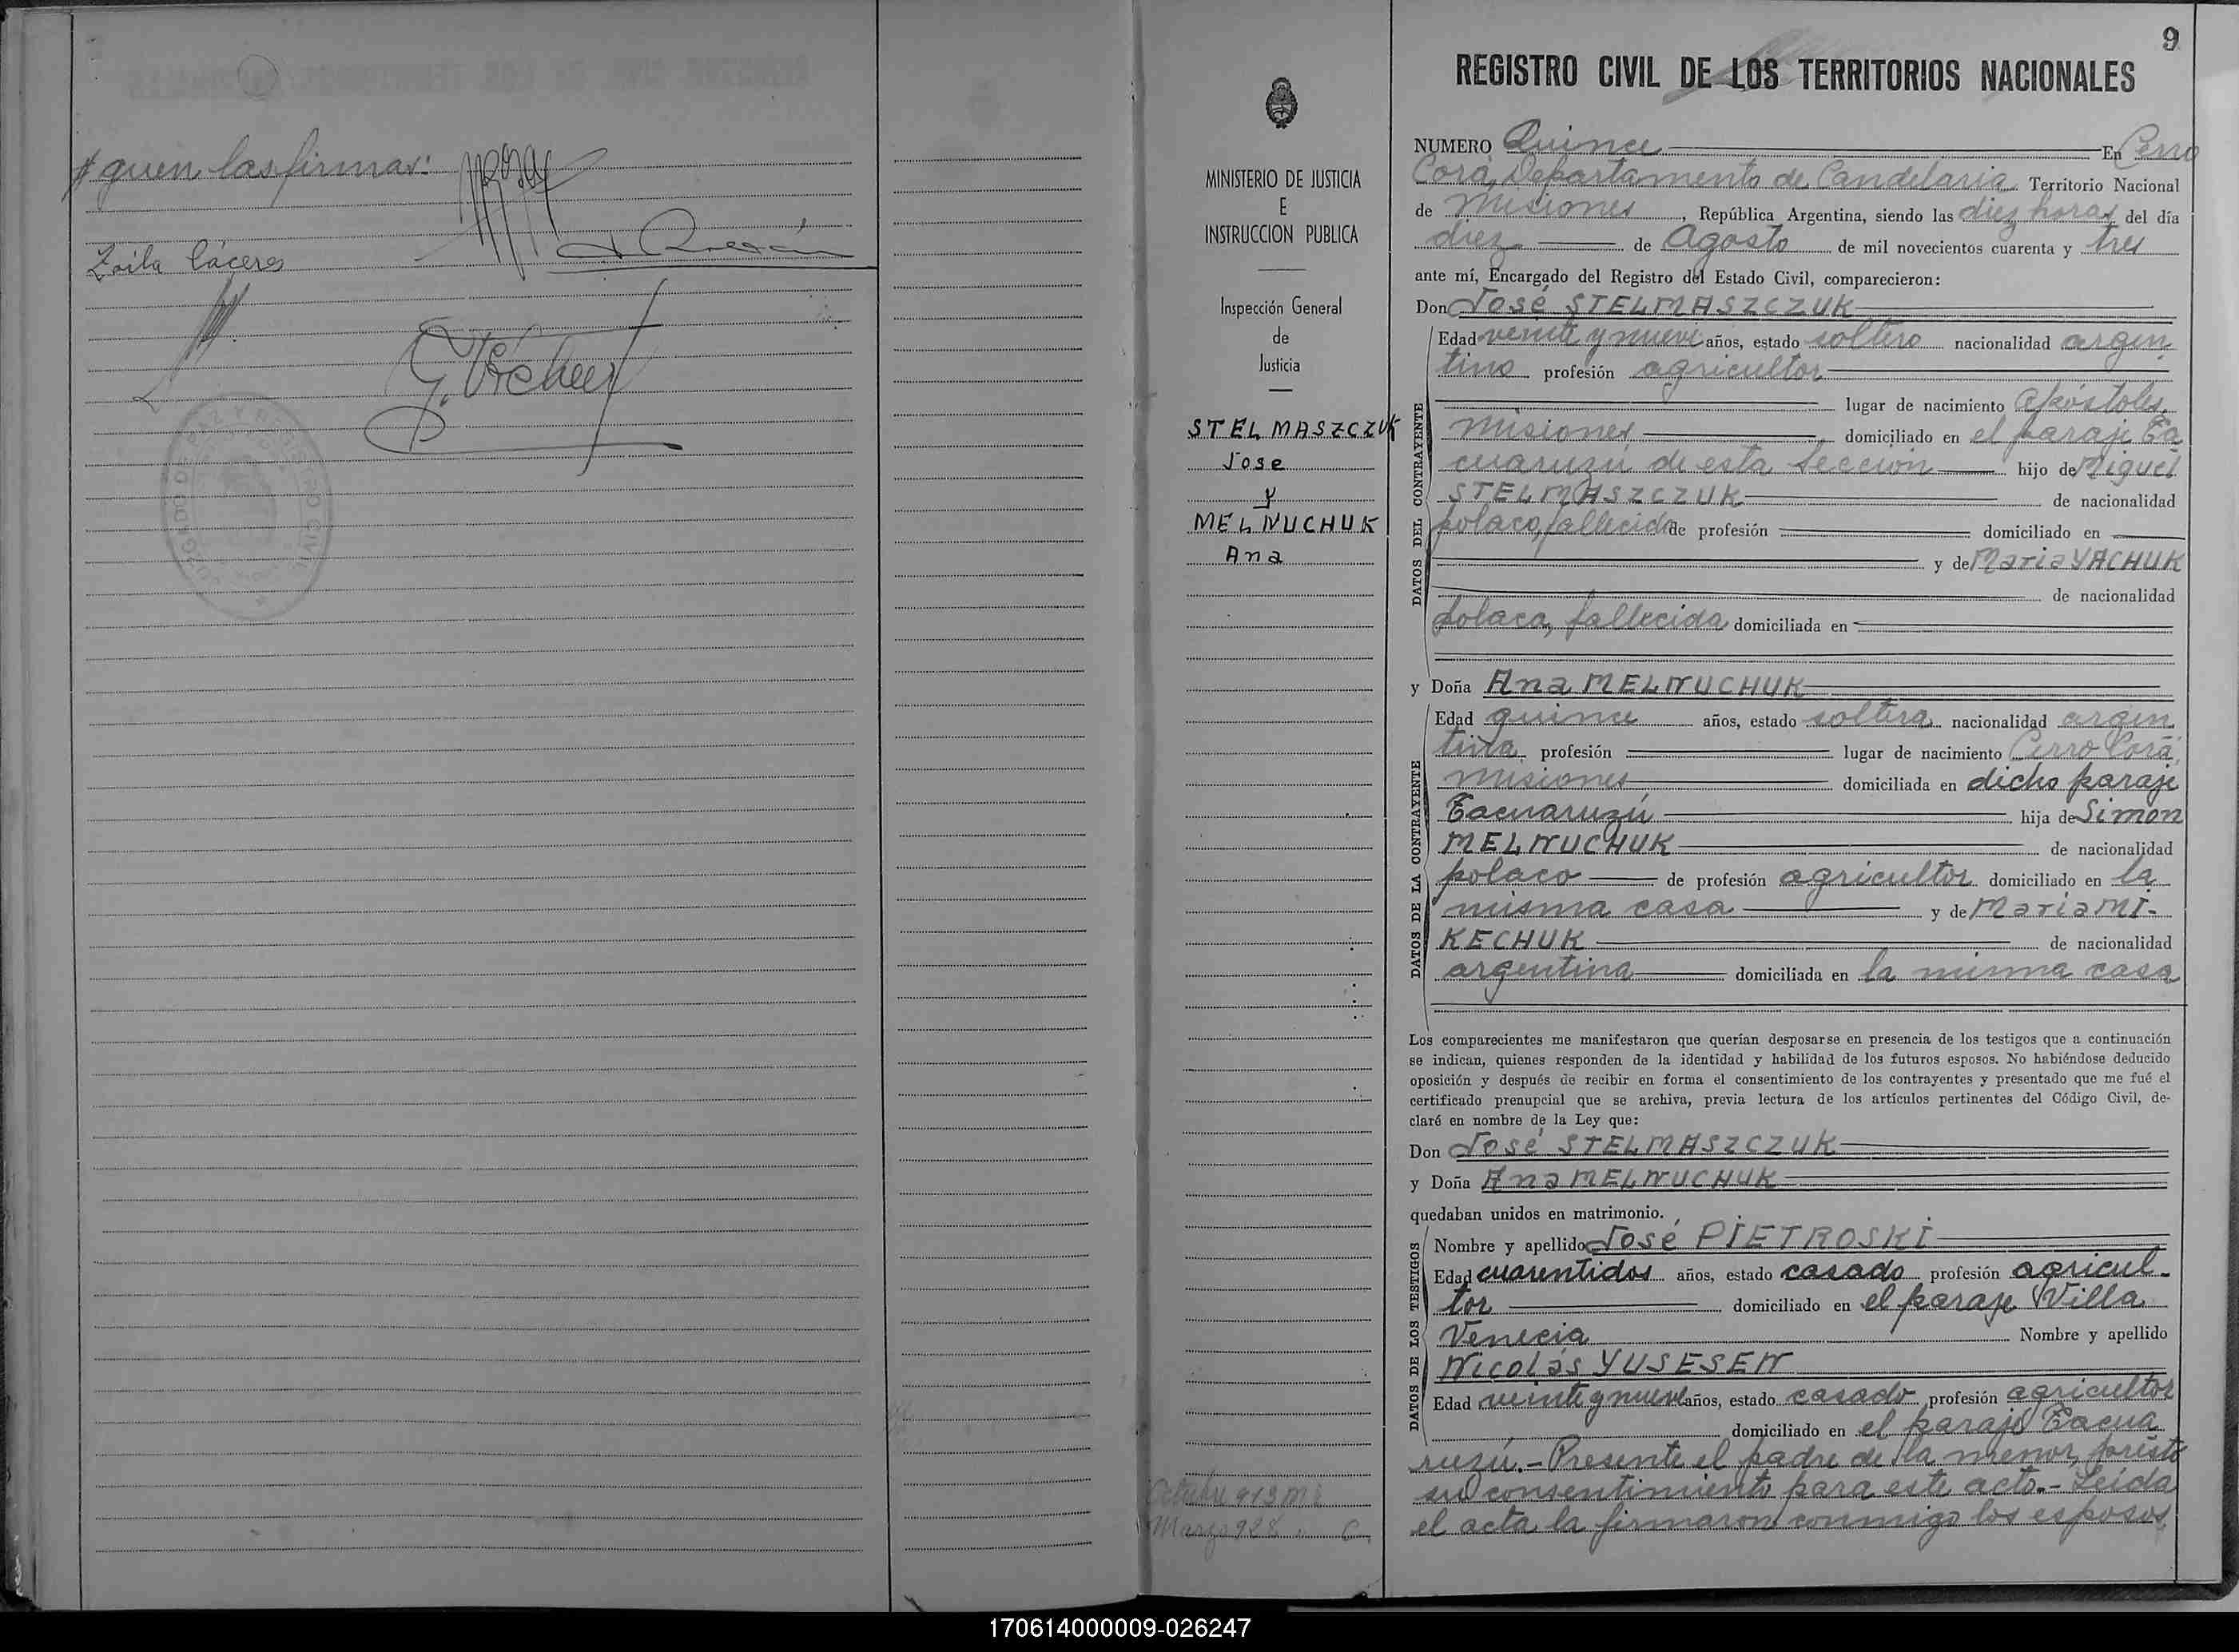 guen las firmas:
Zoila Cáceres
MINISTERIO DE JUSTICIA
E
INSTRUCCION PUBLICA
Inspección General
de
Justicia
STELMASZCZUK
Jose
y
MELNUCHUK
Ana
Octubre 913 M
Marzo 928. C.
9
REGISTRO CIVIL DE LOS TERRITORIOS NACIONALES
NUMERO Quince En Cerro
Corá, Departamento de Candelaria Territorio Nacional
de Misiones, República Argentina, siendo las diez horas del día
diez de Agosto de mil novecientos cuarenta y tres
ante mí, Encargado del Registro del Estado Civil, comparecieron:
Don José STELMASZCZUK
DATOS DEL CONTRAYENTE
Edad veinte y nueve años, estado soltero nacionalidad argen
tino profesión agricultor
lugar de nacimiento Apóstoles,
Misiones domiciliado en el paraje Ta
cuaruzú de esta Sección hijo de Miguel
STELMASZCZUK de nacionalidad
polaco, fallecido de profesión domiciliado en
y de Maria YACHUK
de nacionalidad
polaca, fallecida domiciliada en
y Doña Ana MELNUCHUK
DATOS DE LA CONTRAYENTE
Edad quince años, estado soltera nacionalidad argen
tina profesión lugar de nacimiento Cerro Corá,
Misiones domiciliada en dicho paraje
Tacuaruzú hija de Simon
MELNUCHUK de nacionalidad
polaco de profesión agricultor domiciliado en la
misma casa y de Maria MI-
KECHUK de nacionalidad
argentina domiciliada en la misma casa
Los comparecientes me manifestaron que querían desposarse en presencia de los testigos que a continuación
se indican, quienes responden de la identidad y habilidad de los futuros esposos. No habiéndose deducido
oposición y después de recibir en forma el consentimiento de los contrayentes y presentado que me fué el
certificado prenupcial que se archiva, previa lectura de los artículos pertinentes del Código Civil, de-
claré en nombre de la Ley que:
Don José STELMASZCZUK
y Doña Ana MELNUCHUK
quedaban unidos en matrimonio.
DATOS DE LOS TESTIGOS
Nombre y apellido José PIETROSKI
Edad cuarentidos años, estado casado profesión agricul-
tor domiciliado en el paraje Villa
Venecia Nombre y apellido
Nicolás YUSESEN
Edad veinte y nueve años, estado casado profesión agricultor
domiciliado en el paraje Tacua
ruzú.- Presente el padre de la menor, prestó
su consentimiento para este acto.- Leida
el acta la firmaron conmigo los esposos
170614000009-026247